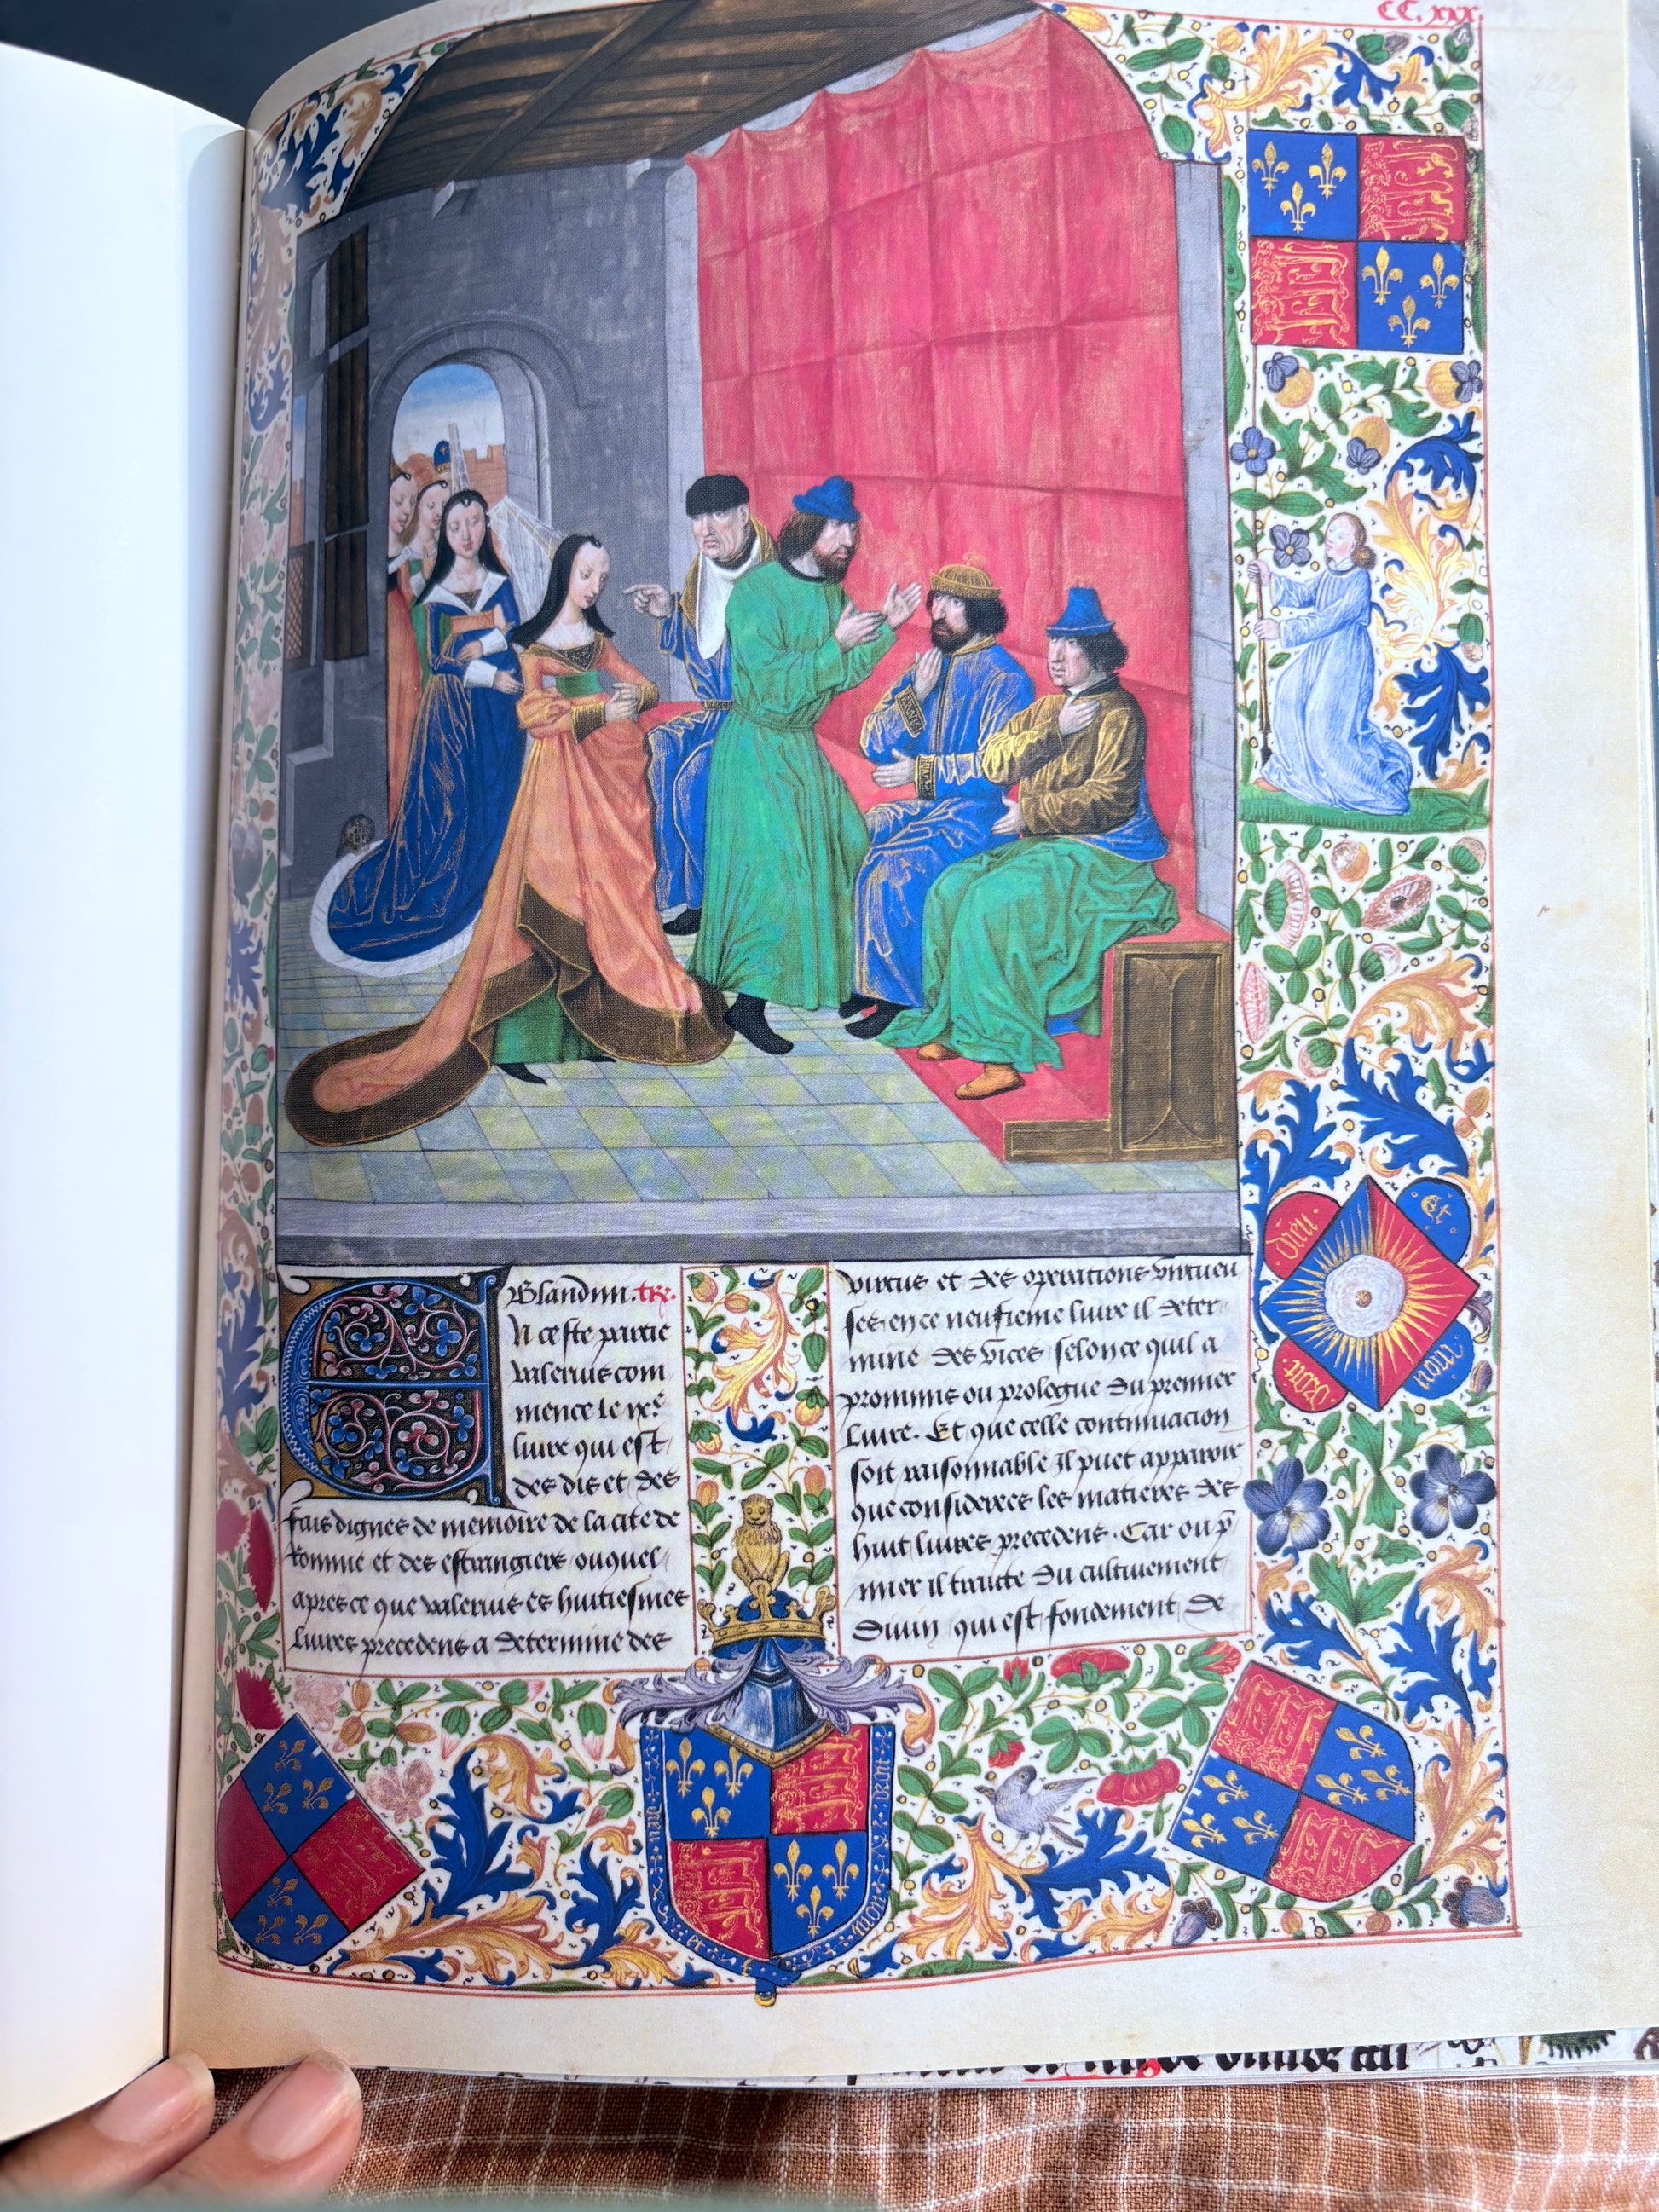 CC. xxx.
Glandun. trx.
N ceste partie
valerius com
mence le ixe
livre qui est
des dis et des
fais dignes de memoire de la cite de
romme et des estrangiers ou quel
apres ce que valerius es huitiesmes
livres precedens a determine des
virtus et des operations virtueu
ses en ce neufieme livre il deter
mine des vices selon ce quil a
prommis ou prologue du premier
livre. Et que celle continuacion
soit raisonnable Il puet apparoir
que considerees les matieres des
huit livres precedens. Car ou p
mier il traicte du cultivement
divin qui est fondement de
Dieu
Et
mon
droit
dieu
et
mon
droit